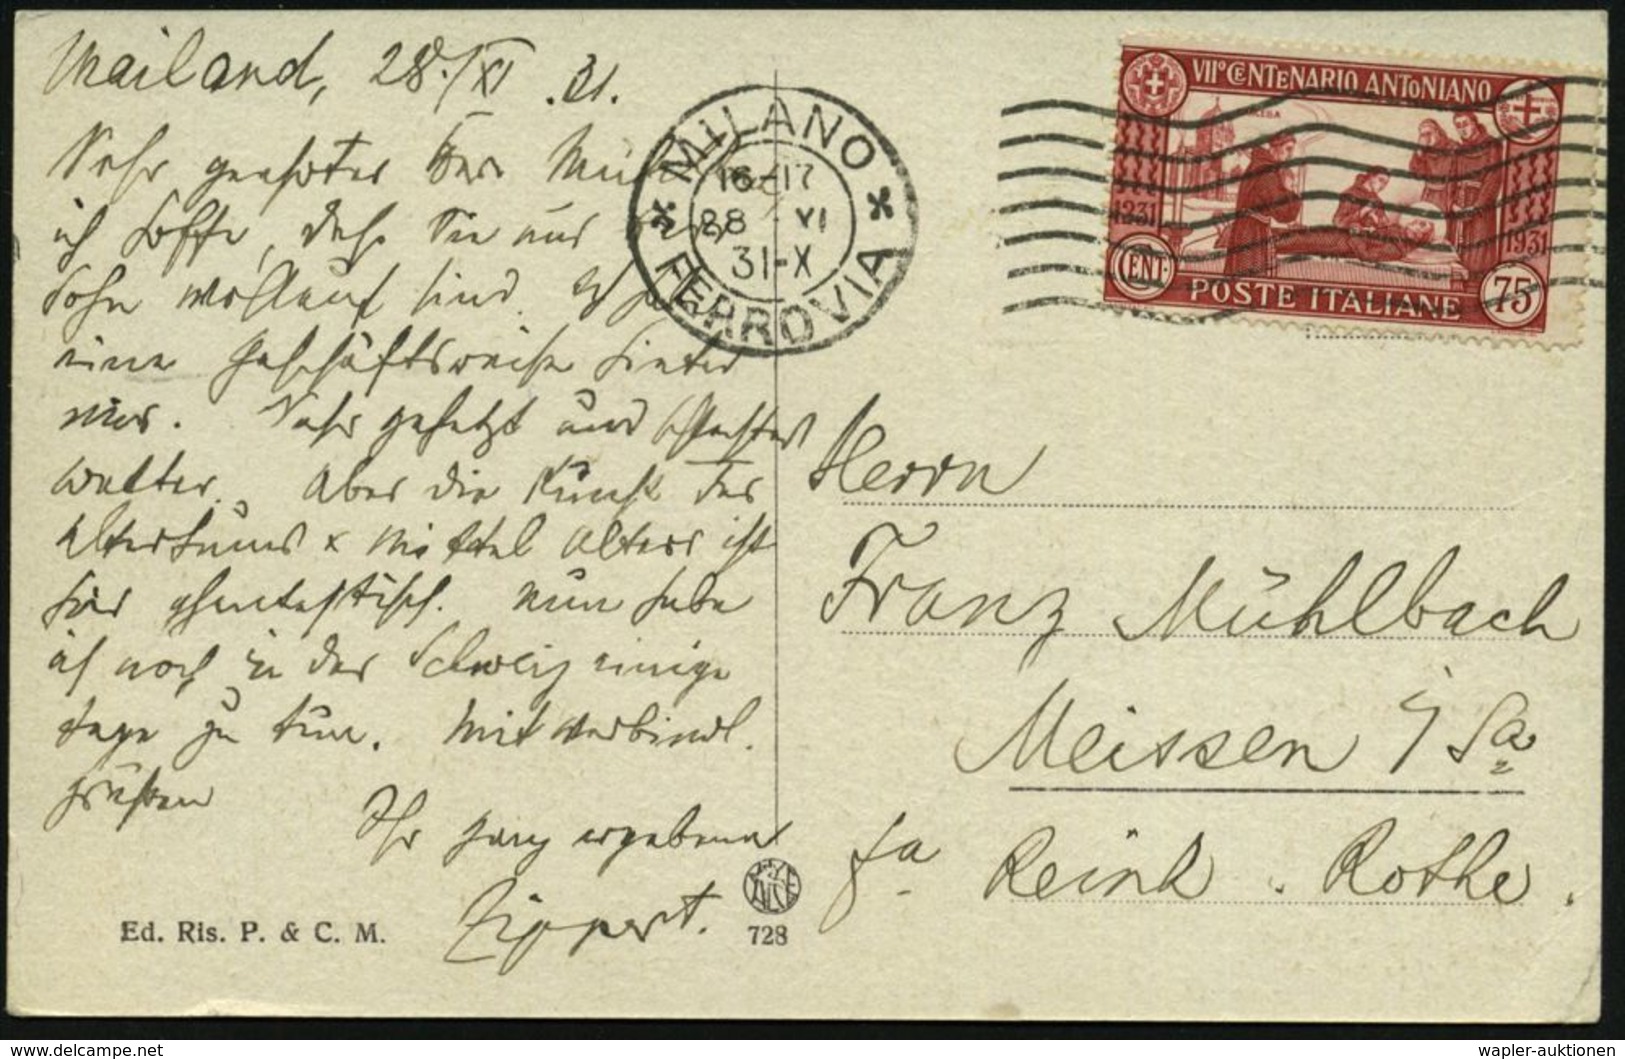 Mailand, 28./XI .31.
Sehr geehrter Herr
ich hoffe, dass Sie und
Sohn wohlauf sind. Ich habe
eine Geschäftsreise hinter
mir. Sehr gehetzt und schlechtes
Wetter. Aber die Kunst des
Altertums x Mittel Alters ist
hier phantastisch. Nun habe
ich noch in der Schweiz einige
tage zu tun. Mit verbindl.
grüßen
Ihr ganz ergebener
Zippert.
Ed. Ris. P. & C. M.
728
MILANO
16-17
28 XI
31-X
FERROVIA
VIIº CENTENARIO ANTONIANO
1231
1931
CENT.
75
POSTE ITALIANE
Herrn
Franz Mühlbach
Meissen i/Sa
fa Reinh. Rothe.
wapler-auktionen
delcampe.net